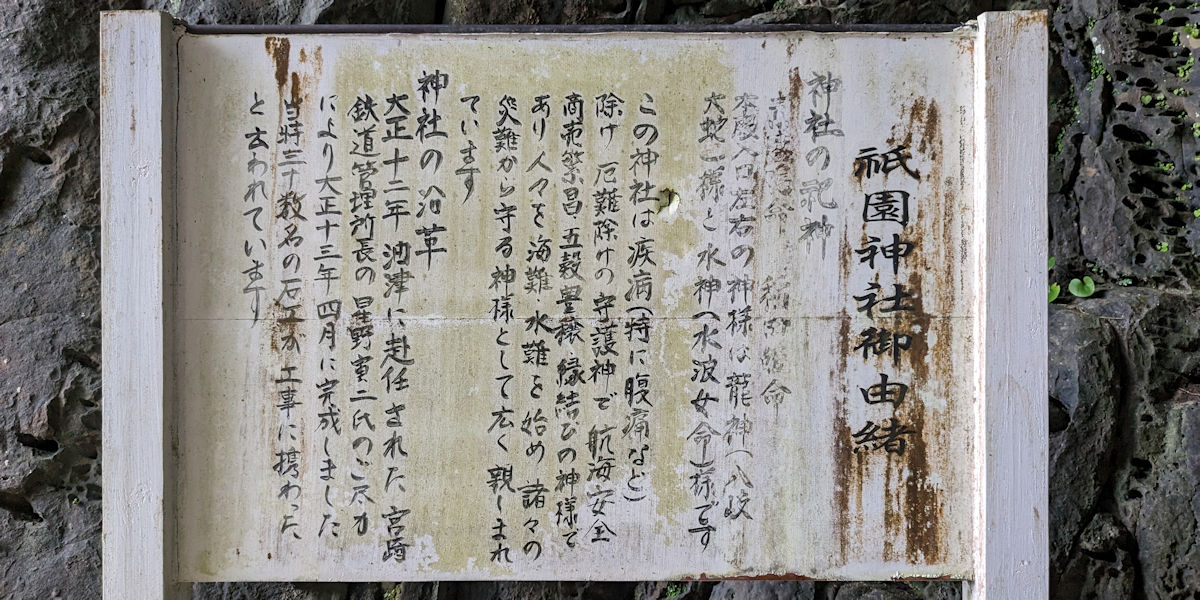 祇園神社御由緒
神社の祀神
命 稲田姫命
本殿入口左右の神様は龍神(八岐
大蛇)様と水神(水波女命)様です
この神社は疾病(特に腹痛など)
除け 厄難除けの守護神で 航海安全
商売繁昌・五穀豊穣・縁結びの神様で
あり人々を海難・水難を始め 諸々の
災難から守る神様として広く親しまれ
ています
神社の沿革
大正十二年 油津に赴任された 宮崎
鉄道管理所長の 星野寅二氏のご尽力
により大正十三年四月に完成しました
当時三十数名の石工が 工事に携わった
と云われています